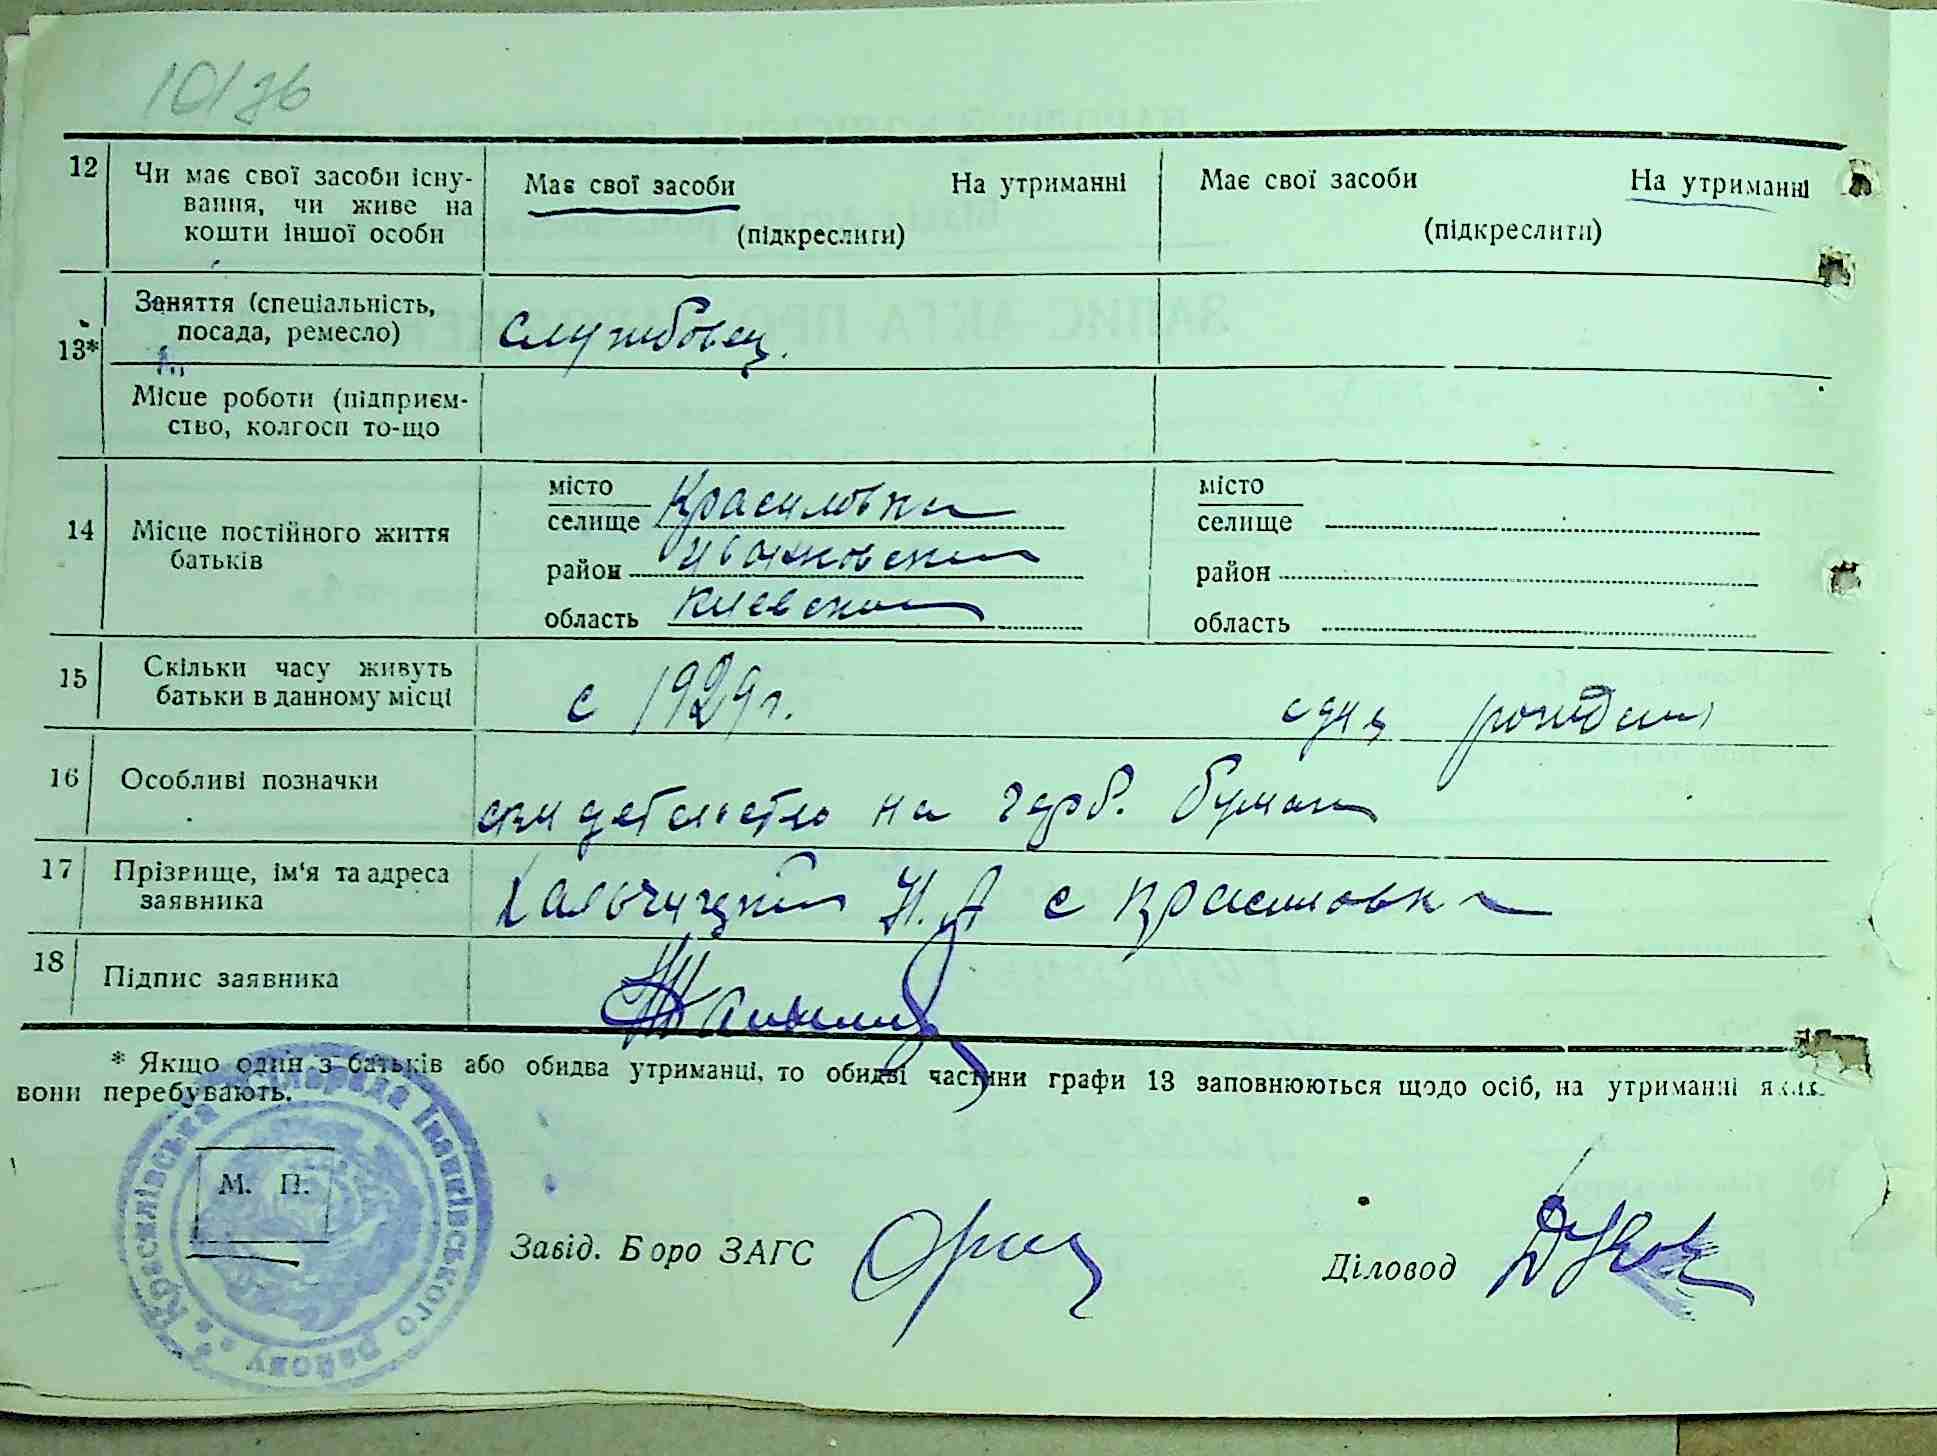 10/36
12 Чи має свої засоби існу-
вання, чи живе на
кошти іншої особи
Має свої засоби На утриманні
(підкреслити)
Має свої засоби На утриманні
(підкреслити)
13* Заняття (спеціальність,
посада, ремесло)
службовец.
Місце роботи (підприєм-
ство, колгосп то-що
14 Місце постійного життя
батьків
місто
селище Красиловка
район Иванковский
область Киевская
місто
селище
район
область
15 Скільки часу живуть
батьки в данному місці
с 1929 г. с дня рождения
16 Особливі позначки
свидетельство на герб. бумаге
17 Прізвище, ім'я та адреса
заявника
Н. А с Красиловка
18 Підпис заявника
* Якщо один з батьків або обидва утриманці, то обидві частини графи 13 заповнюються щодо осіб, на утриманні яких
вони перебувають.
Красилівська сільрада Іванківського району
М. П.
Завід. Бюро ЗАГС
Діловод